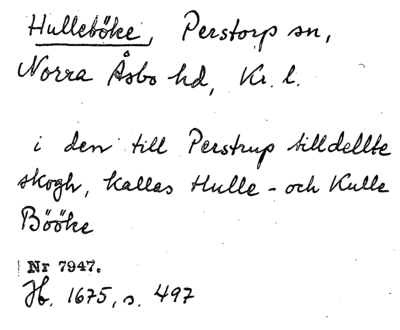 Hulleböke, Perstorp sn,
Norra Åsbo hd, Kr. l.
i den till Perstrup tilldellte
skogh, kallas Hulle- och Kulle
Bööke
Nr 7947.
Jb. 1675, s. 497